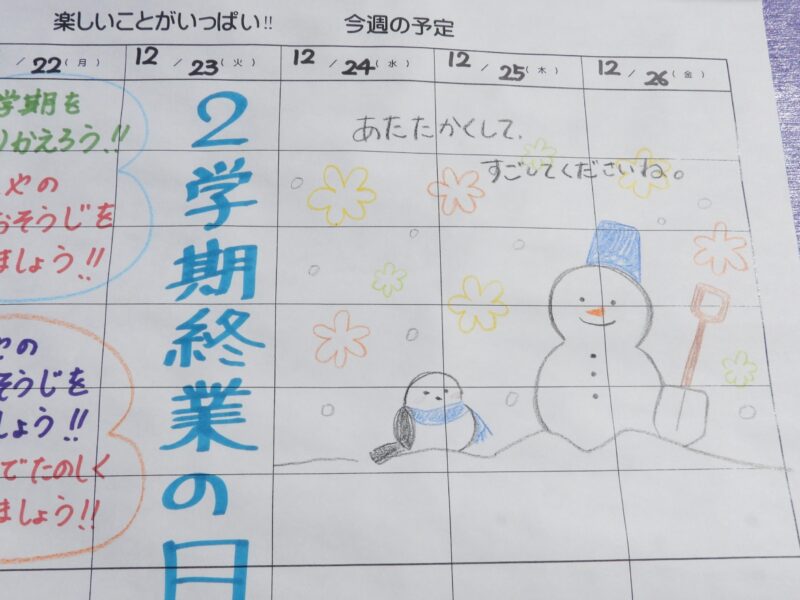 楽しいことがいっぱい!! 今週の予定
/ 22(月) 12/23(火) 12/24(水) 12/25(木) 12/26(金)
学期を
りかえろう!!
やの
おそうじを
ましょう!!
やの
そうじを
しょう!!
でたのしく
ましょう!!
2学期終業の日
あたたかくして、
すごしてくださいね。